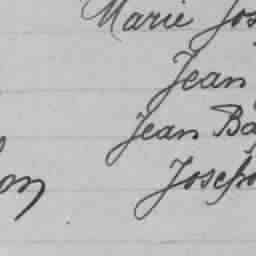 Marie Jos
Jean
Jean Ba
on Joseph